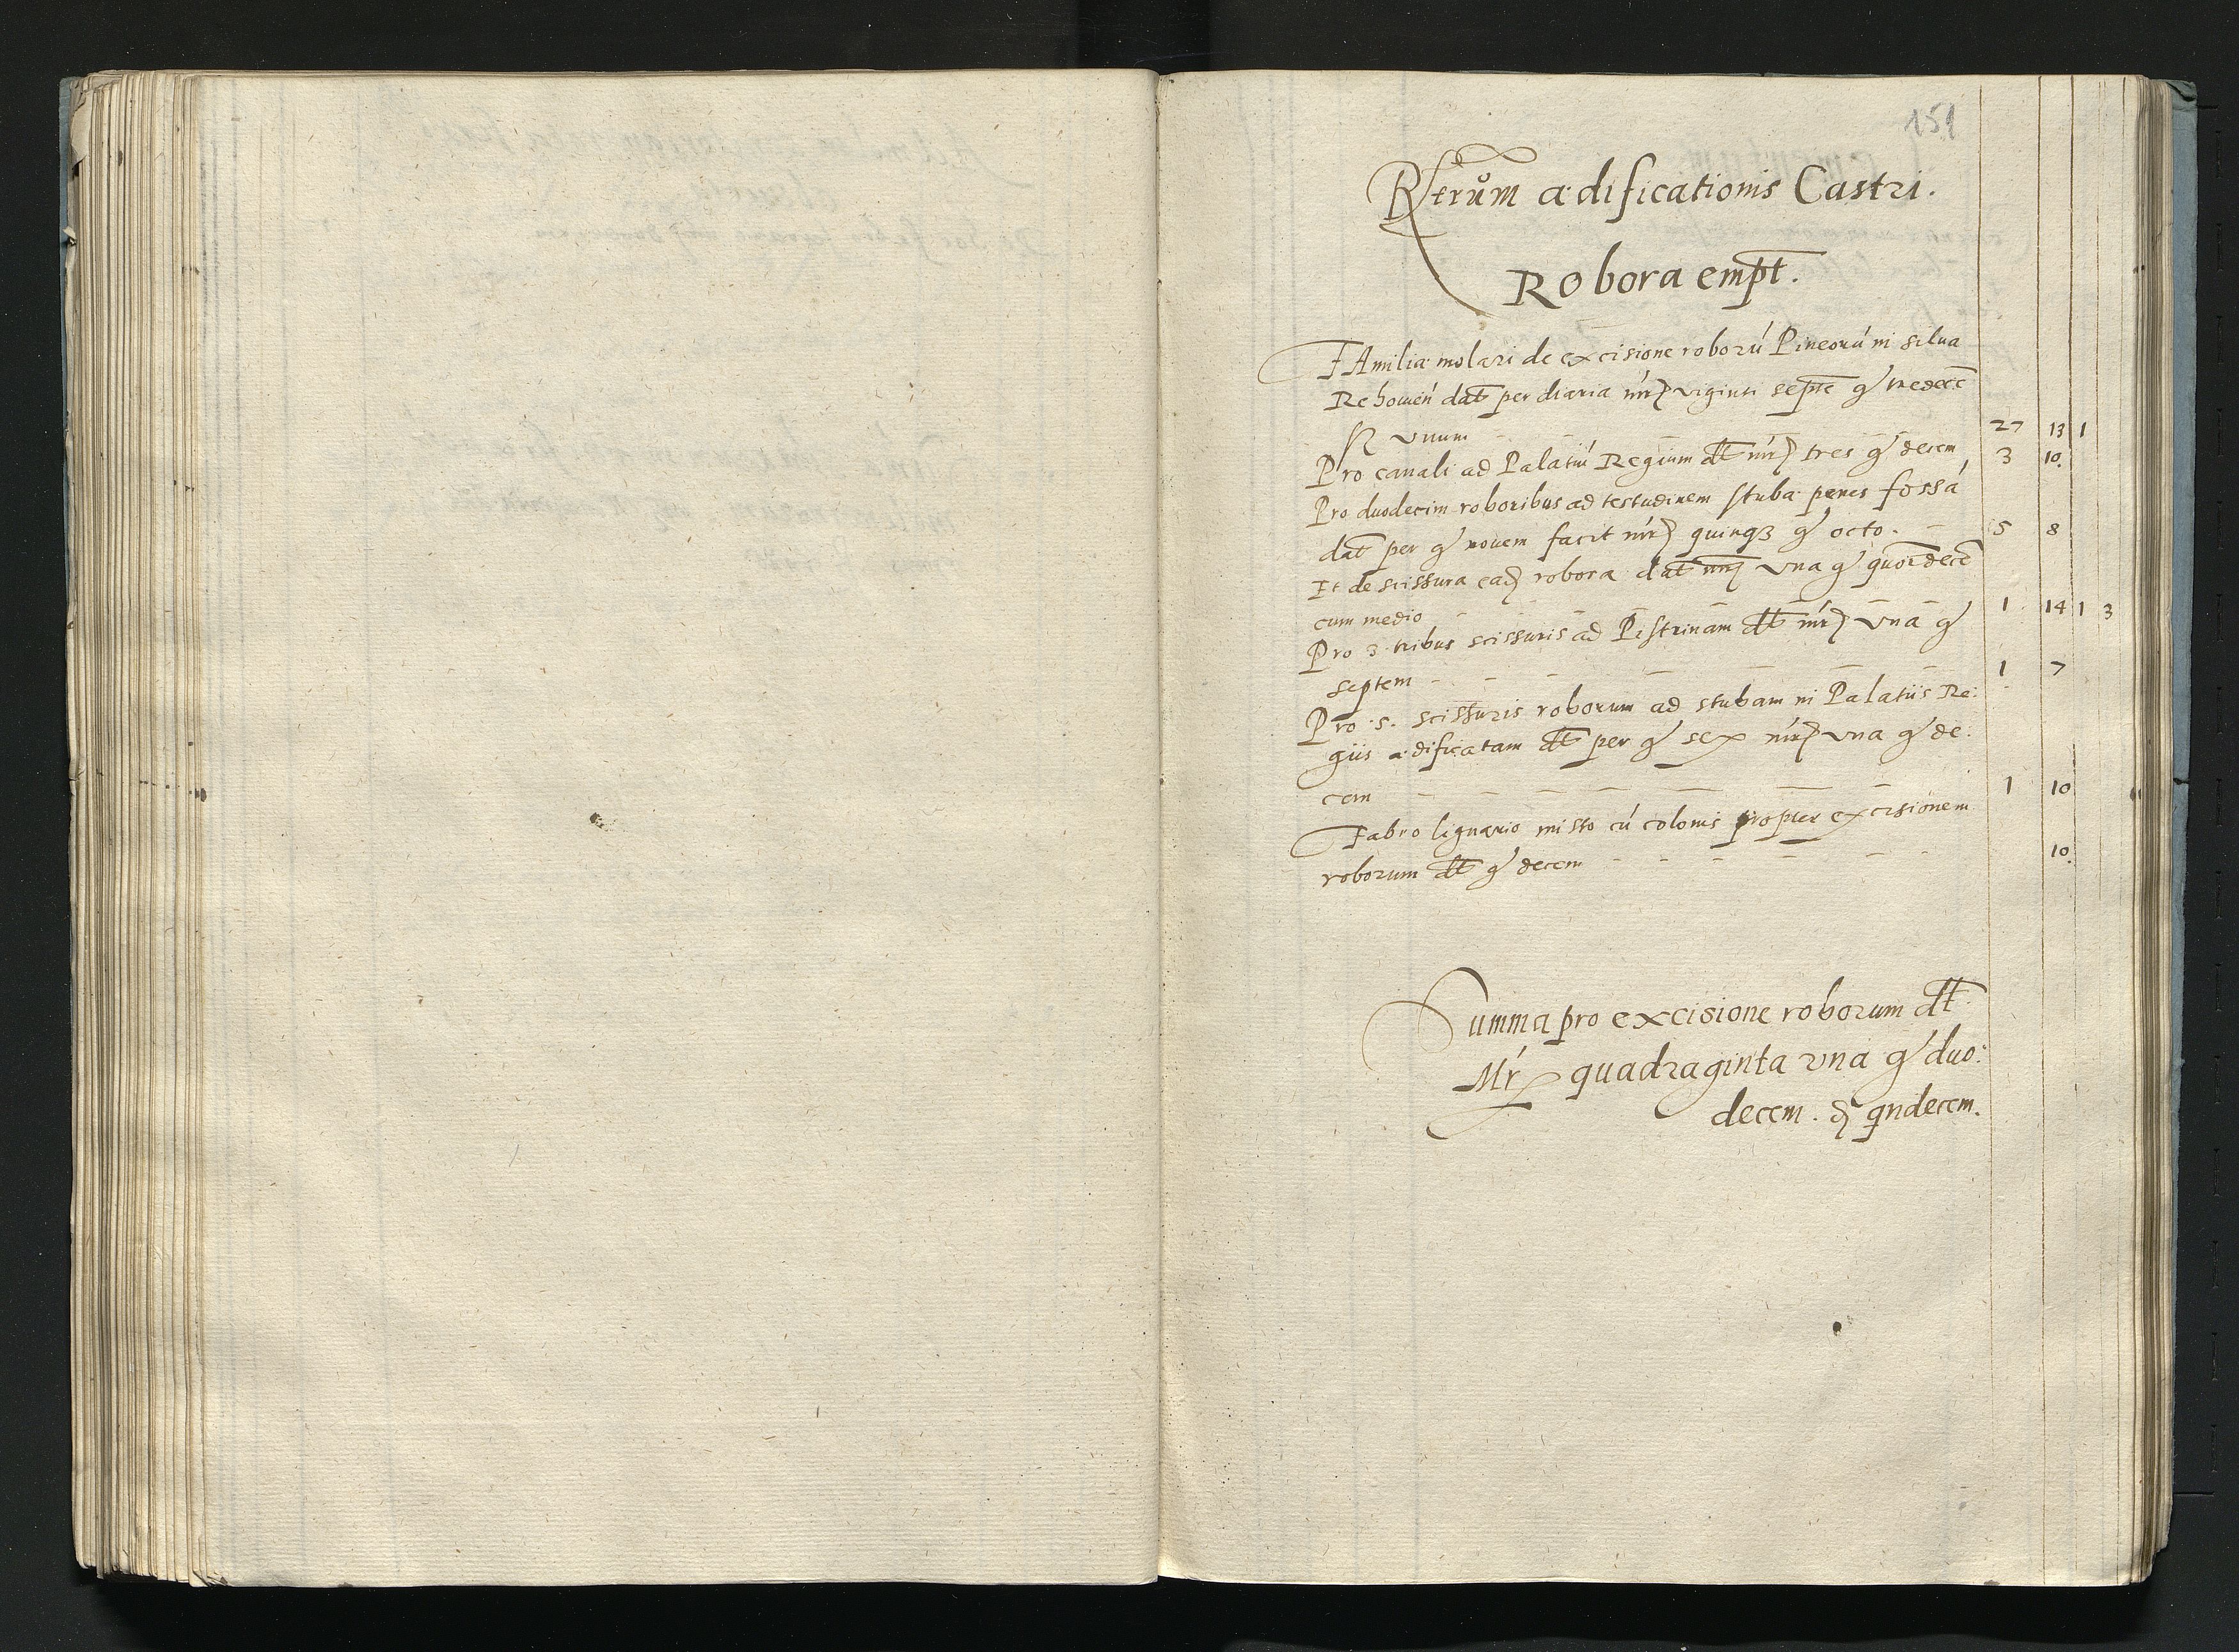 151
Rerům ædificationis Castri.
Robora empt.
FAmiliæ molari de excisione roború Pineorú in silua
Rehowen̄ dat̄ per diaria mr̄ viginti septē gʳ tredecē
unum 27 13 1
Pro canali ad Palatiú Regium dt̄ mr̄ tres gʳ decem 3 10.
Pro duodecim roboribus ad testudinem stubæ penes fossá
dat̄ per gʳ nouem facit mr̄ quinqꝫ gʳ octo. 5 8
Et de scissura eadꝫ robora dat̄ mr̄ vna gʳ
cum medio 1 14 1 3
Pro 3 tribus scissuris ad Pistrinam dt̄ mr̄ vna gʳ
septem 1 7
Pro .5. scissuris roborum ad stubam in Palatiis Re:
giis ædificatam dt̄ per gʳ sex mr̄ vna gʳ de:
cem 1 10
Fabro lignario misso cú colonis propter excisionem
roborum dt̄ gʳ decem 10.
Summa pro excisione roborum dt̄
Mr̄ quadraginta vna gʳ duo:
decem. ꝺ qndecem.